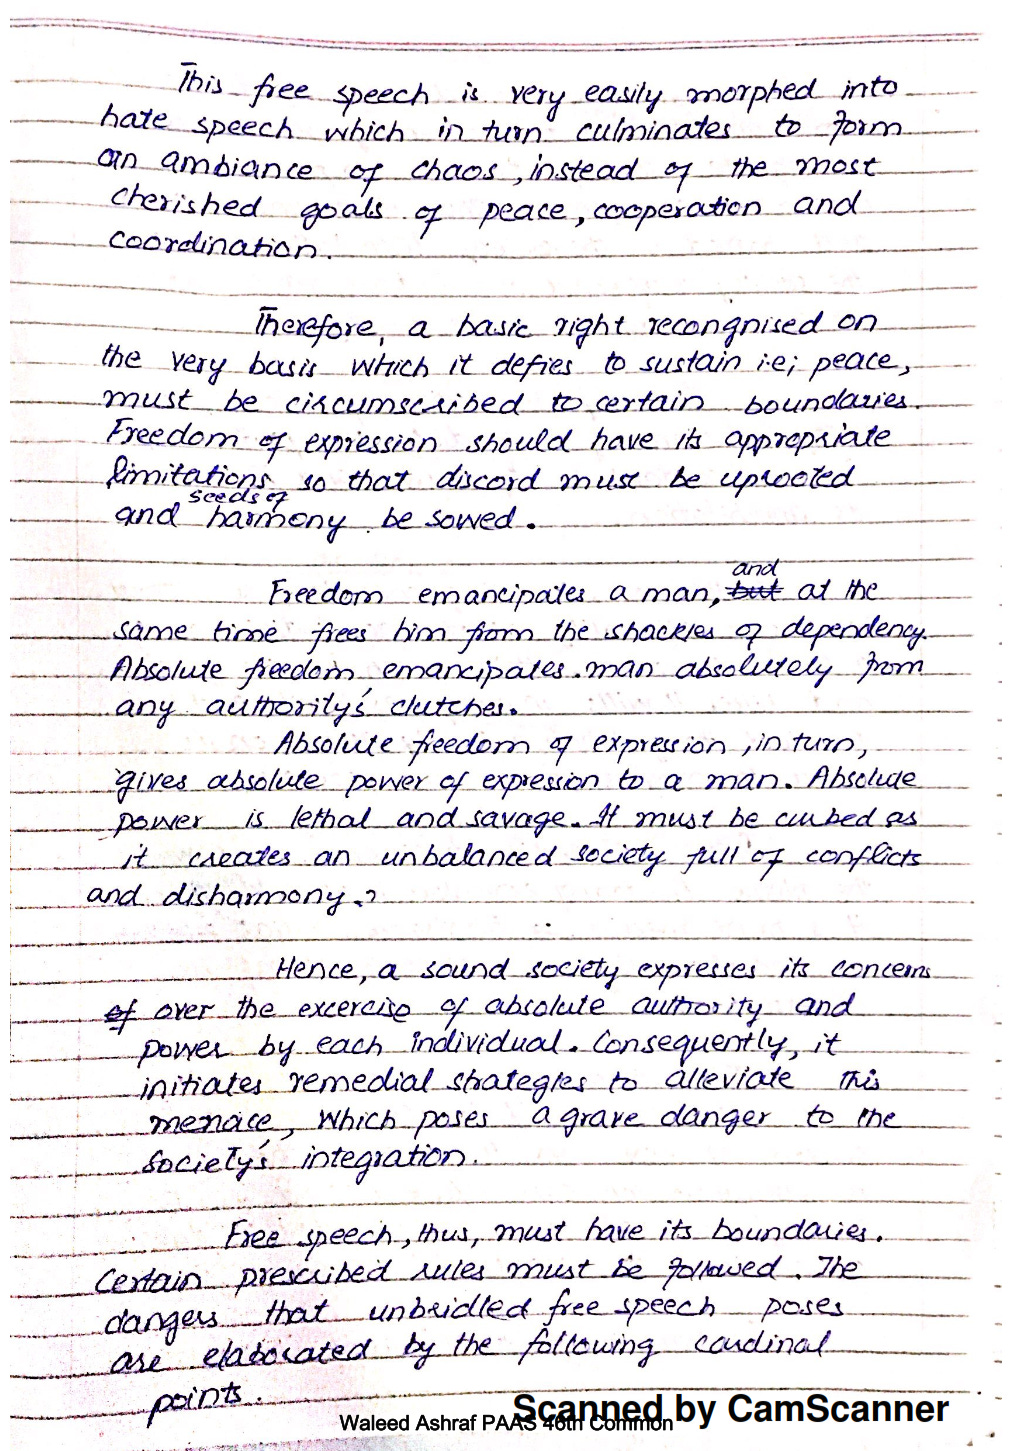 This free speech is very easily morphed into
hate speech which in turn culminates to form
an ambiance of chaos, instead of the most
cherished goals of peace, cooperation and
coordination.
Therefore, a basic right recongnised on
the very basis which it defies to sustain i.e; peace,
must be circumscribed to certain boundaries.
Freedom of expression should have its appropriate
limitations so that discord must be uprooted
seeds of
and harmony be sowed.
and
Freedom emancipates a man, but at the
same time frees him from the shackles of dependency.
Absolute freedom emancipates man absolutely from
any authority's clutches.
Absolute freedom of expression, in turn,
gives absolute power of expression to a man. Absolute
power is lethal and savage. It must be curbed as
it creates an unbalanced society full of conflicts
and disharmony.
Hence, a sound society expresses its concerns
of over the excercise of absolute authority and
power by each individual. Consequently, it
initiates remedial strategies to alleviate this
menace, which poses a grave danger to the
society's integration.
Free speech, thus, must have its boundaries.
Certain prescribed rules must be followed. The
dangers that unbridled free speech poses
are elaborated by the following cardinal
points.
Scanned by CamScanner
Waleed Ashraf PAAS 46th Common